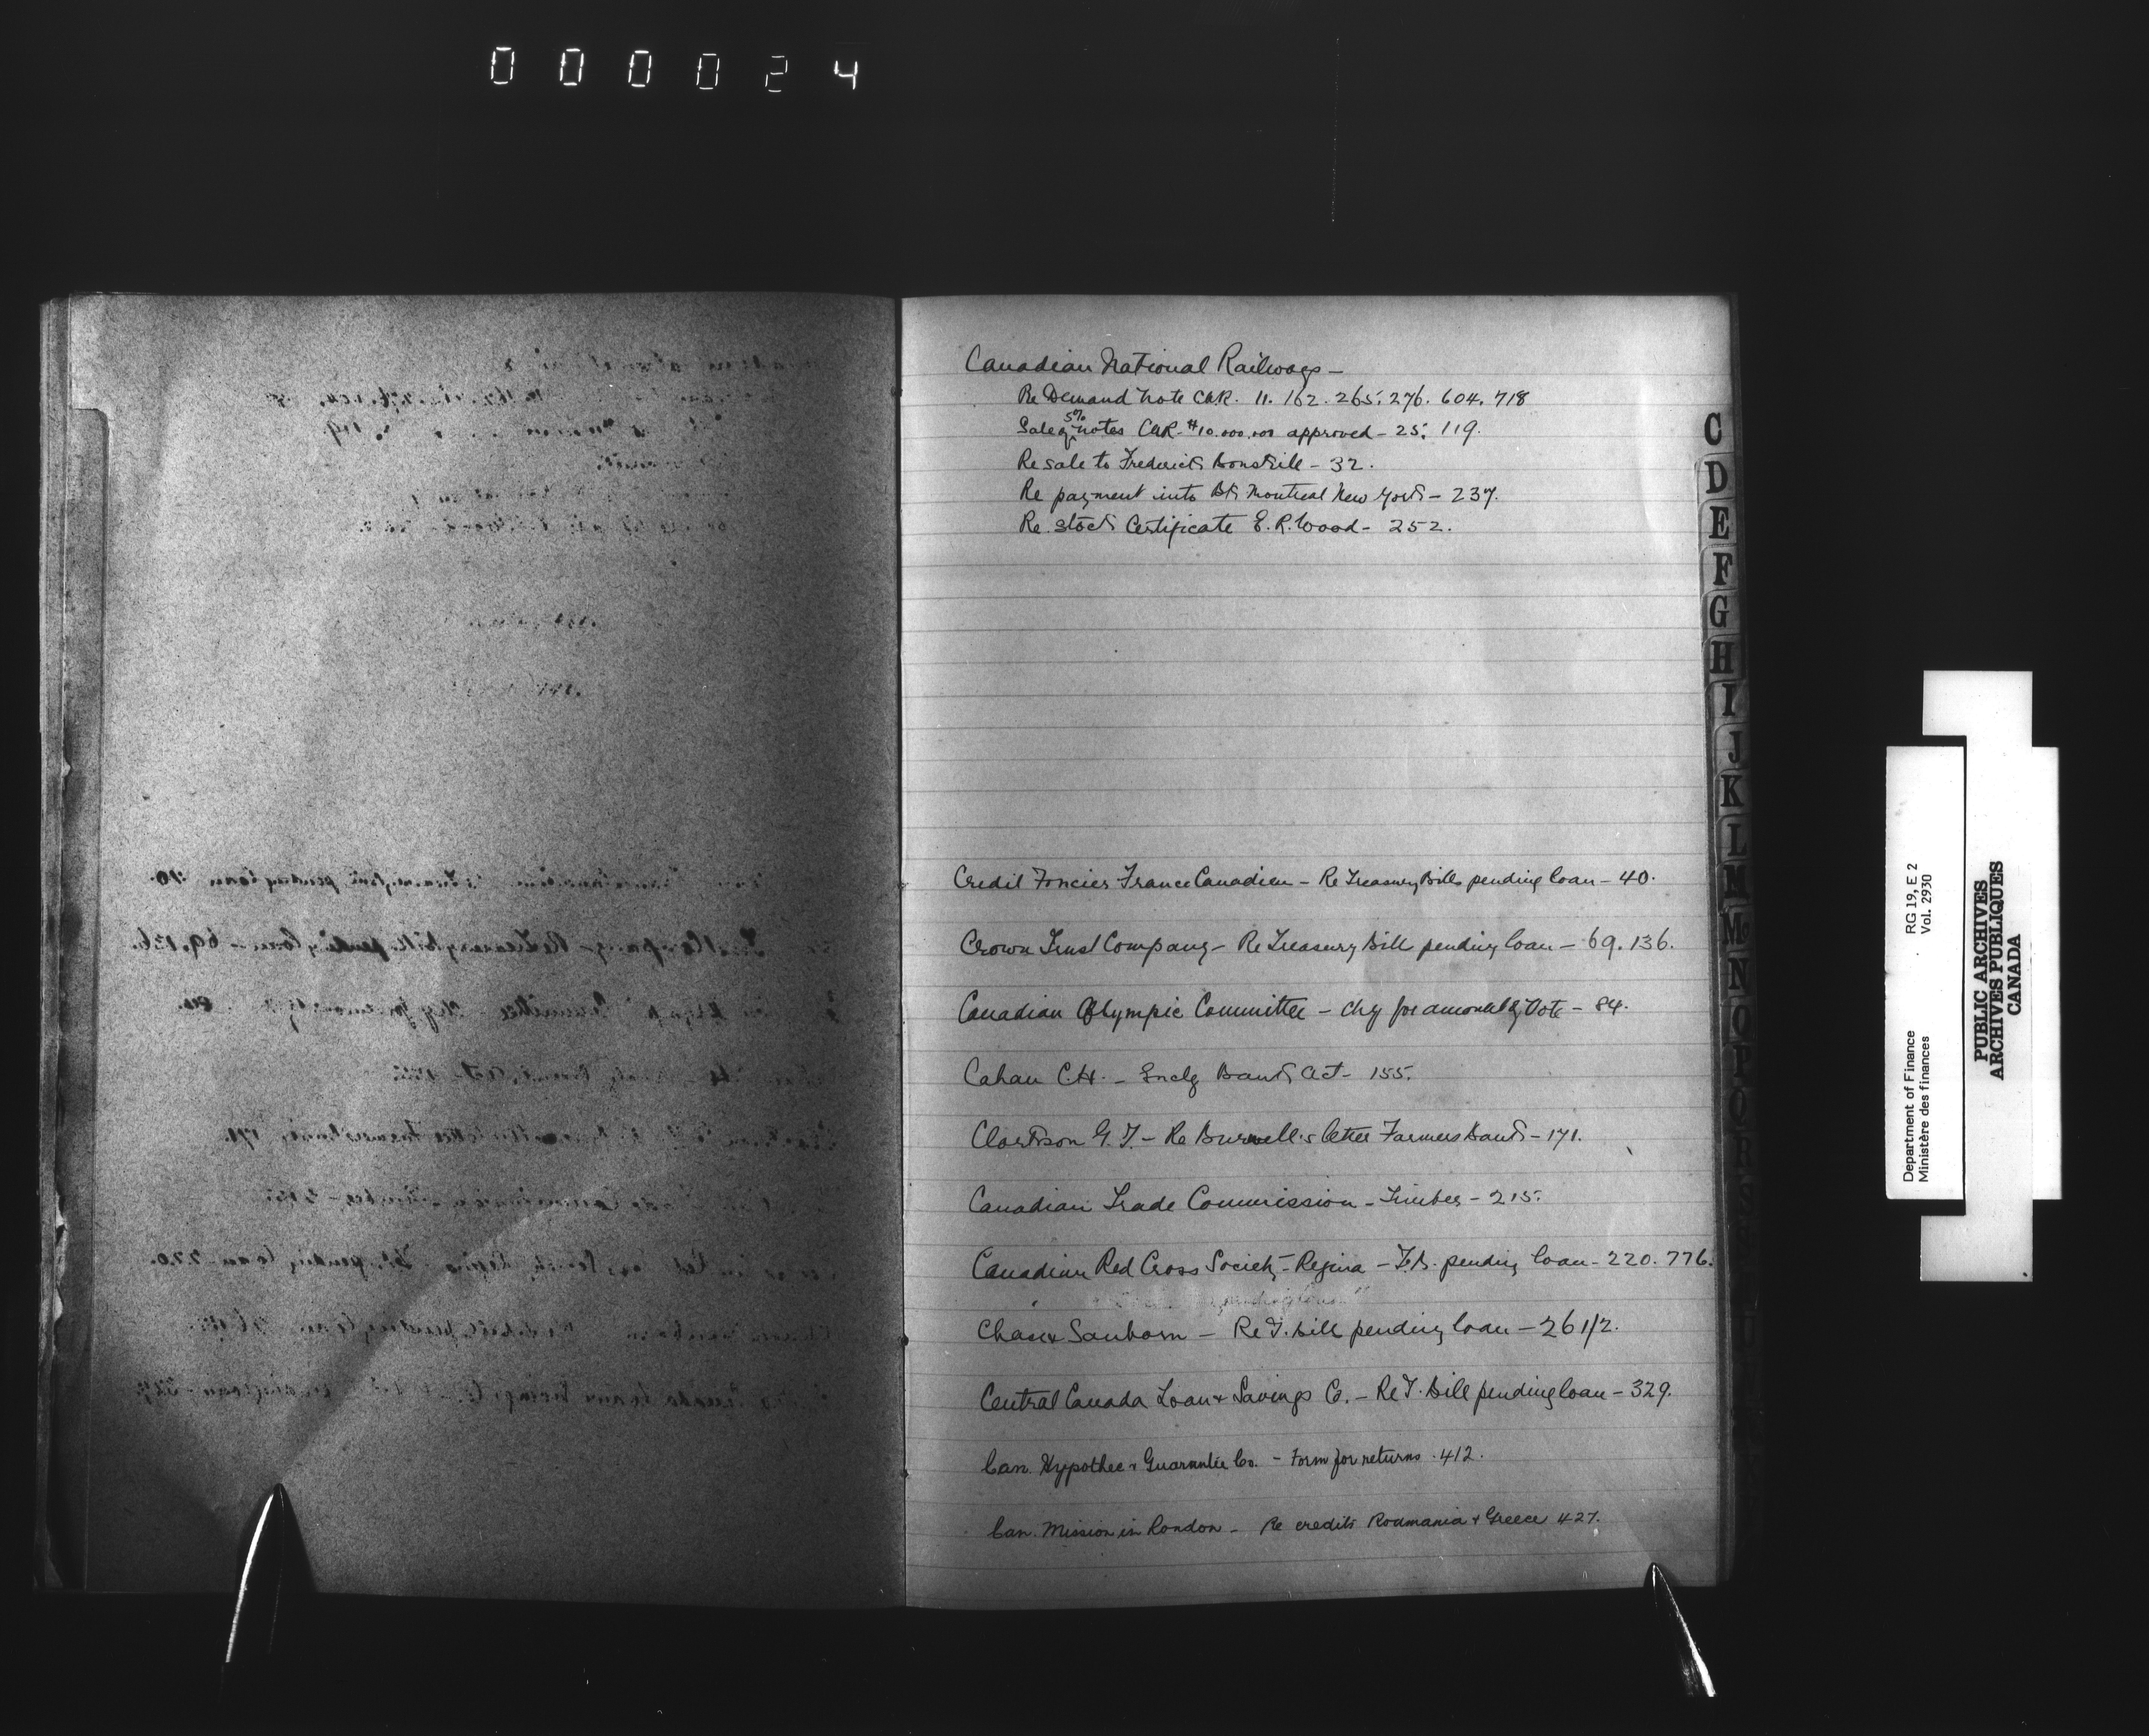 000024
Canadian National Railways —
Re Demand Note C.N.R. 11. 162. 265. 276. 604. 718
Sale of 5% notes CNR. $10.000.000 approved - 25. 119.
Re sale to Frederick Bonskill - 32.
Re payment into Bk Montreal New York - 237.
Re. Stock Certificate E. R. Wood - 252.
Credit Foncier Franco Canadien - Re Treasury Bills pending loan - 40.
Crown Trust Company - Re Treasury Bill pending loan - 69. 136.
Canadian Olympic Committee - chq for amount of Vote - 84.
Cahan C.H. - Enclg Bank Act - 155.
Clarkson G. T. - Re Burwell's letter Farmers Bank - 171.
Canadian Trade Commission - Timber - 215.
Canadian Red Cross Society - Regina - T.B. pending loan - 220. 776.
Chase & Sanborn - Re T. Bill pending loan - 261/2.
Central Canada Loan & Savings Co. - Re T. Bill pending loan - 329.
Can. Hypothec & Guarantee Co. - Form for returns. 412.
Can. Mission in London - Re credits Roumania & Greece 427.
C
D
E
F
G
H
I
J
K
L
M
N
O
Department of Finance RG 19, E 2
Ministère des finances Vol. 2930
PUBLIC ARCHIVES
ARCHIVES PUBLIQUES
CANADA